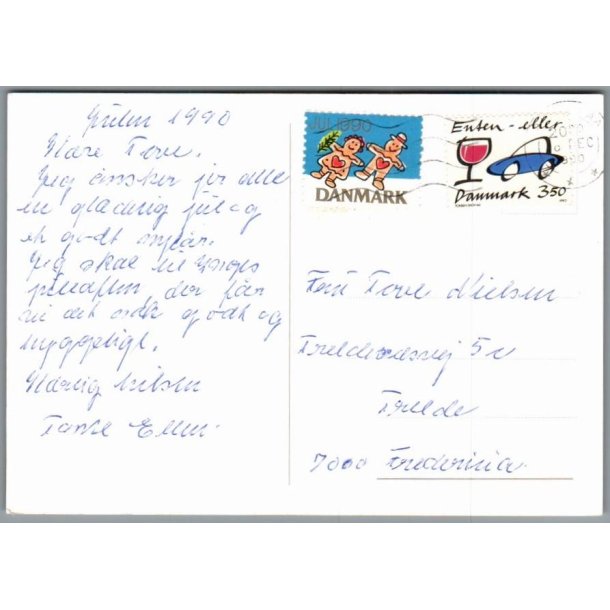 Julen 1990
Kære Tove.
Jeg ønsker jer alle
en glædelig jul og
et godt nytår.
Jeg skal til
juleaften, der får
vi det godt og
hyggeligt.
Kærlig hilsen
Tante Ellen.
JUL 1990
DANMARK
Enten - eller
Danmark 3.50
DEC
1990
Fru Tove Nielsen
Treldenæsvej 5
Trelde
7000 Fredericia